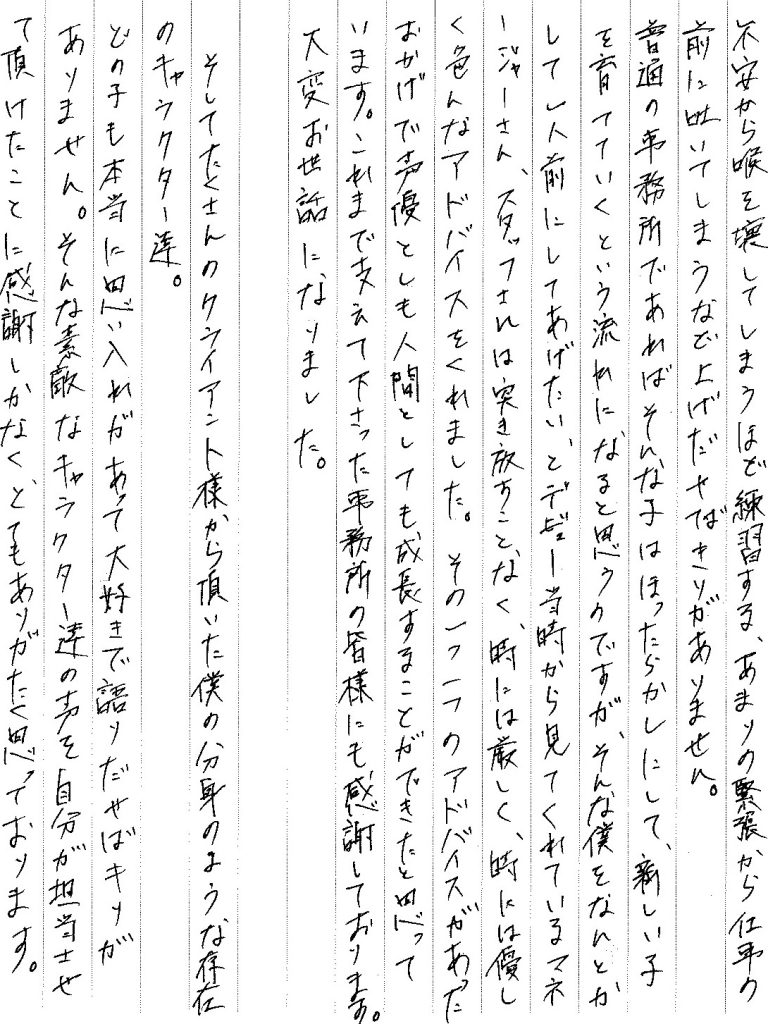 不安から喉を壊してしまうほど練習する、あまりの緊張から仕事の
前に吐いてしまうなど上げだせばきりがありません。
普通の事務所であればそんな子はほったらかしにして、新しい子
を育てていくという流れになると思うのですが、そんな僕をなんとか
して一人前にしてあげたい、とデビュー当時から見てくれているマネ
ージャーさん、スタッフさんは突き放すことなく、時には厳しく、時には優し
く色んなアドバイスをくれました。その一つ一つのアドバイスがあった
おかげで声優としも人間としても成長することができたと思って
います。これまで支えて下さった事務所の皆様にも感謝しております。
大変お世話になりました。
そしてたくさんのクライアント様から頂いた僕の分身のような存在
のキャラクター達。
どの子も本当に思い入れがあって大好きで語りだせばキリが
ありません。そんな素敵なキャラクター達の声を自分が担当させ
て頂けたことに感謝しかなく、とてもありがたく思っております。